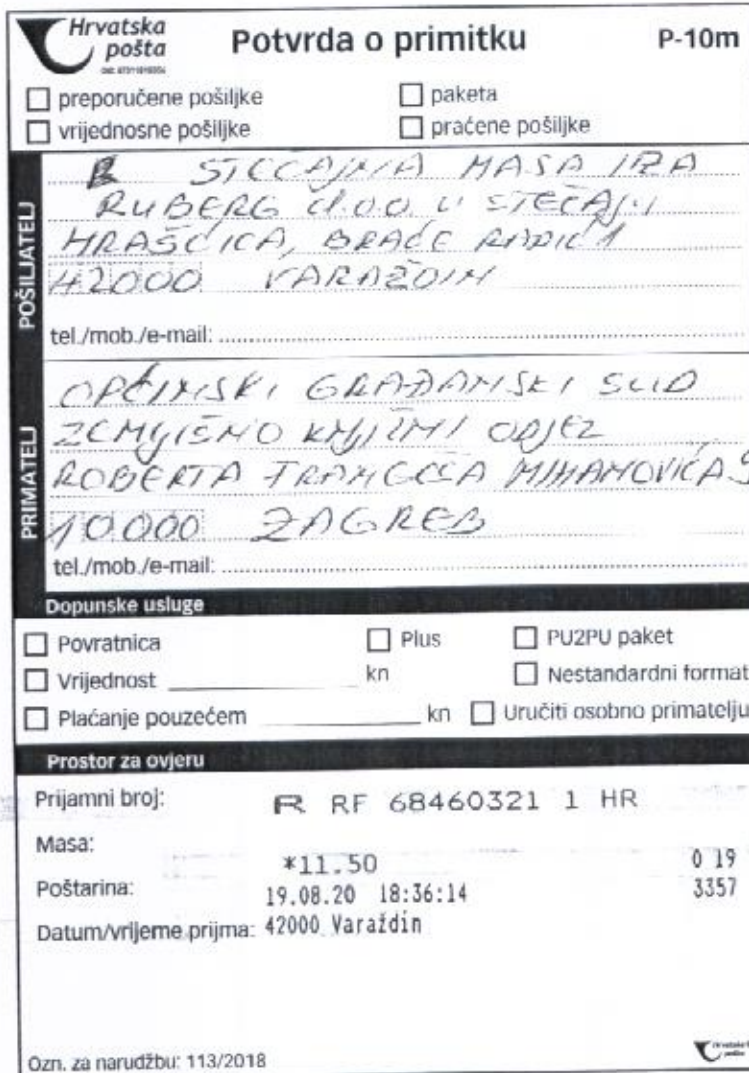 Hrvatska
pošta
Potvrda o primitku
P-10m
preporučene pošiljke
paketa
vrijednosne pošiljke
praćene pošiljke
POŠILJATELJ
STEČAJNA MASA IZA
RUBERG d.o.o. u STEČAJU
HRAŠĆICA, BRAĆE RADIĆ 1
42000 VARAŽDIN
tel./mob./e-mail:
PRIMATELJ
OPĆINSKI GRAĐANSKI SUD
ZEMLJIŠNO KNJIŽNI ODJEL
ROBERTA FRANGEŠA MIHANOVIĆA
10000 ZAGREB
tel./mob./e-mail:
Dopunske usluge
Povratnica
Plus
PU2PU paket
Vrijednost kn
Nestandardni format
Plaćanje pouzećem kn
Uručiti osobno primatelju
Prostor za ovjeru
Prijamni broj: R RF 68460321 1 HR
Masa:
*11.50 0 19
Poštarina: 19.08.20 18:36:14 3357
Datum/vrijeme prijma: 42000 Varaždin
Ozn. za narudžbu: 113/2018